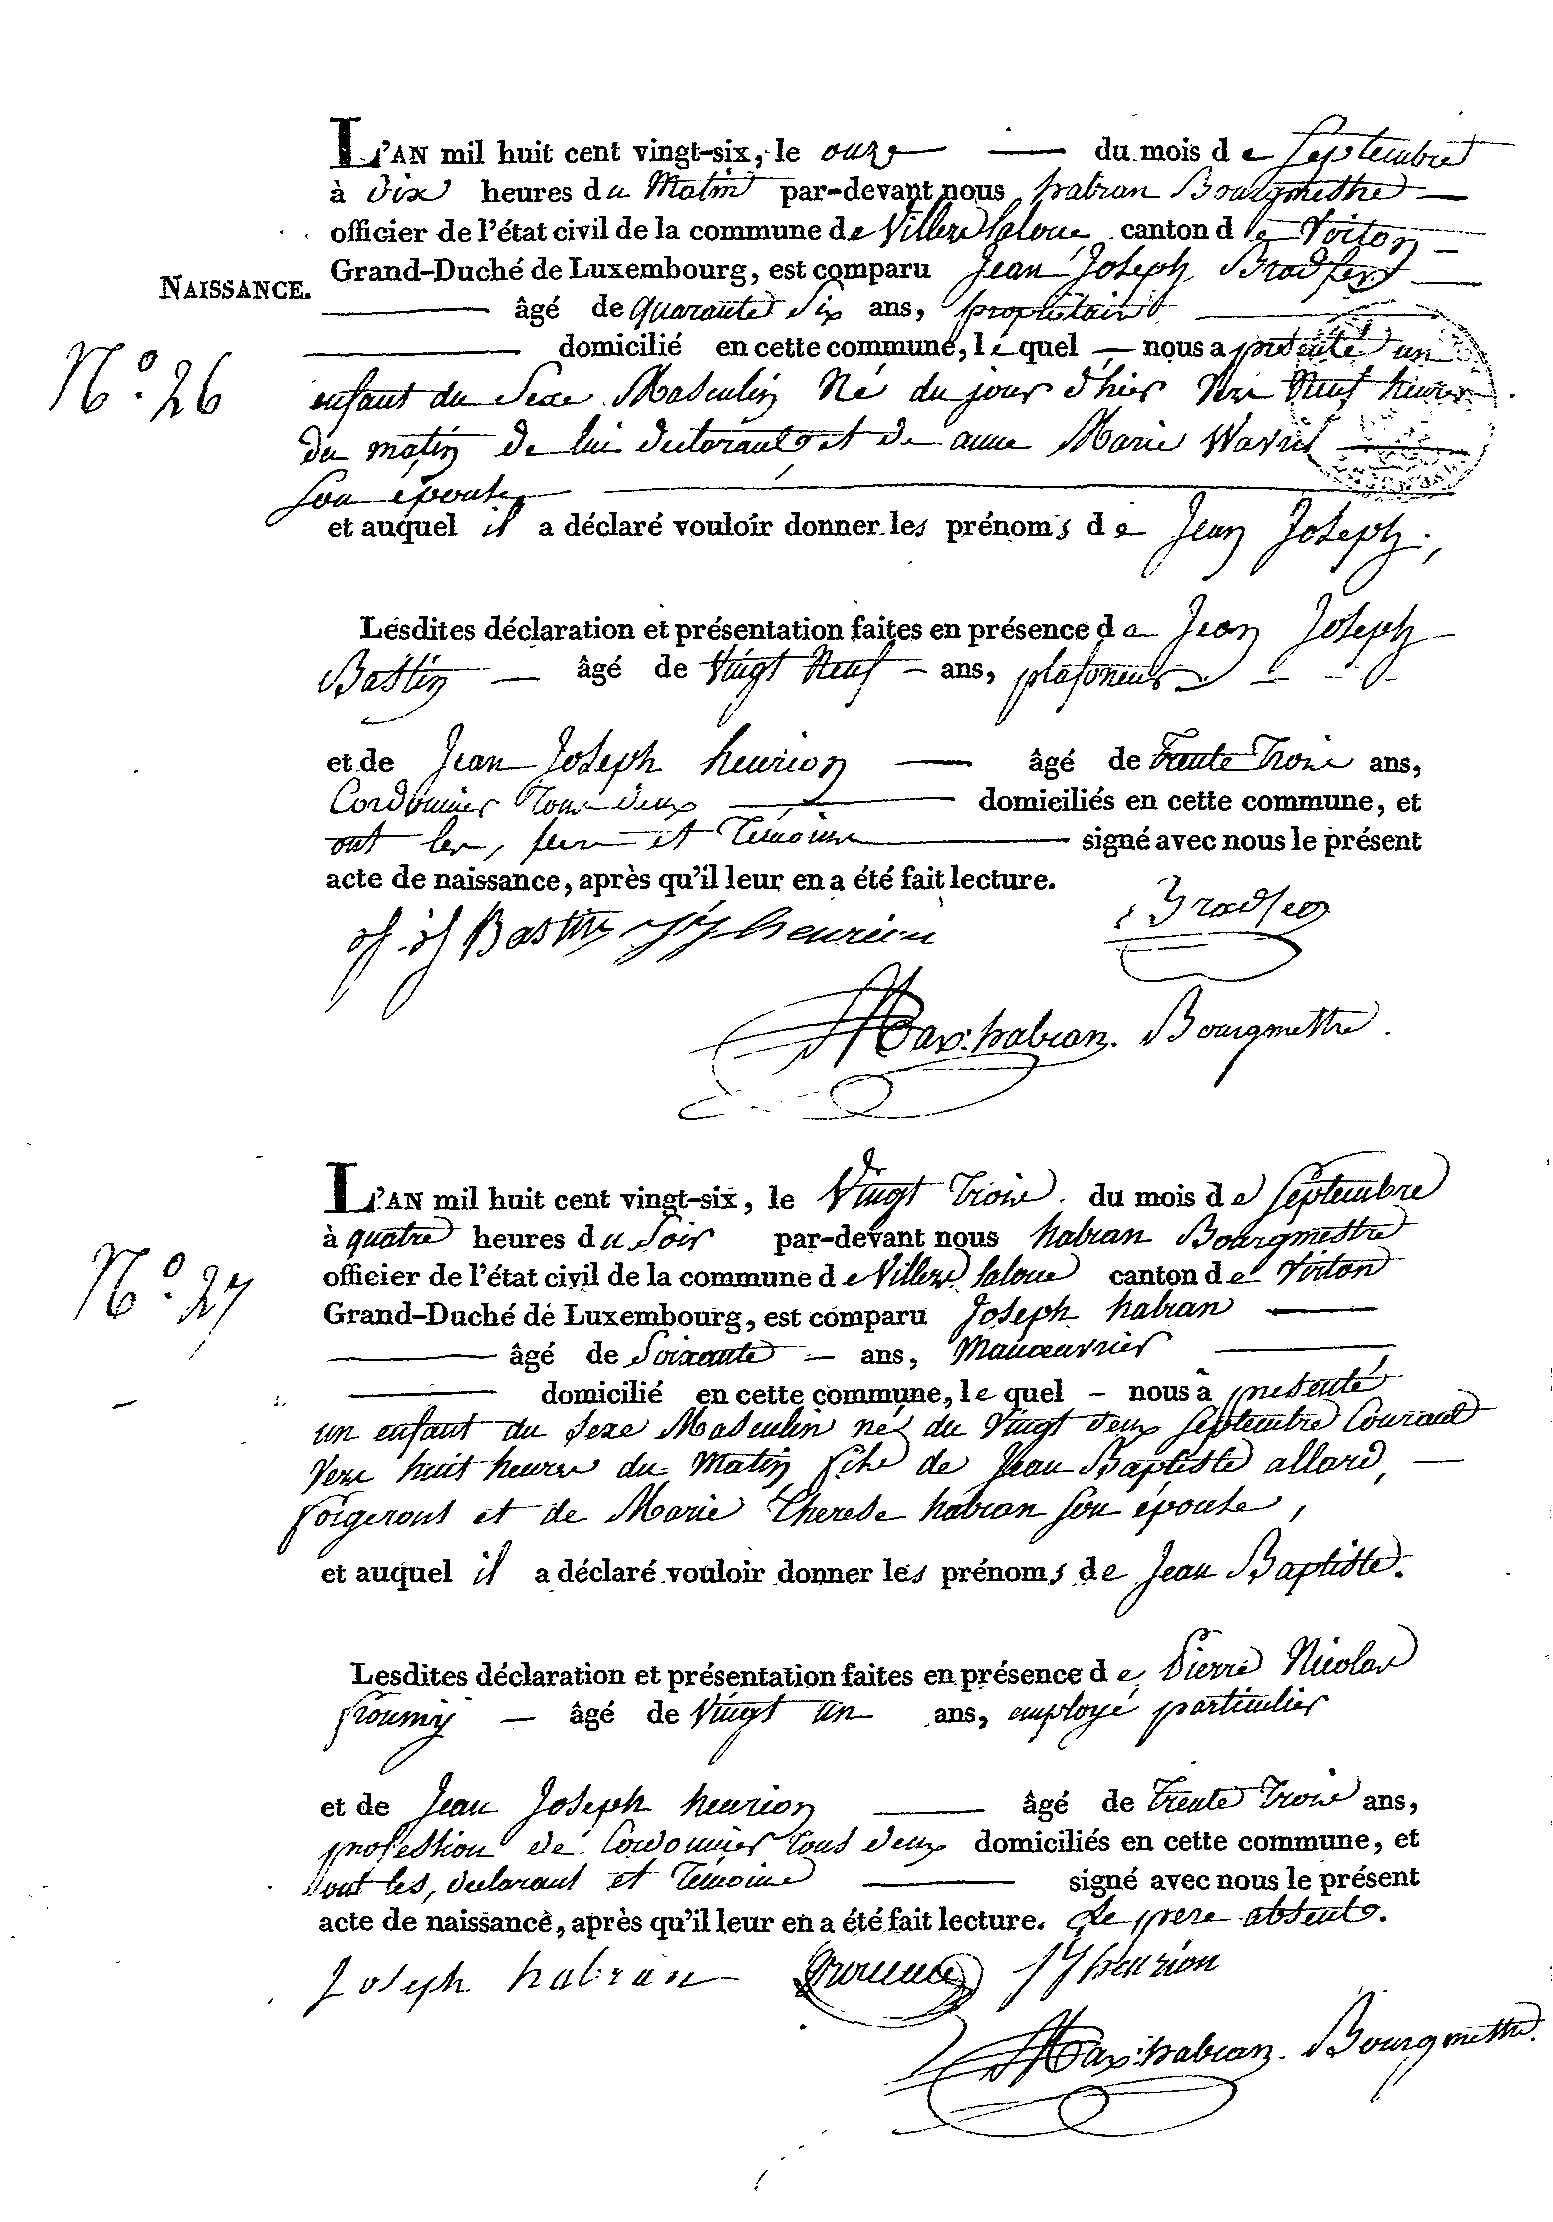 L'AN mil huit cent vingt-six, le onze du mois de Septembre
à dix heures du Matin par-devant nous habran Bourgmestre
officier de l'état civil de la commune de Villers laloue canton de Virton
Grand-Duché de Luxembourg, est comparu Jean Joseph Bradfer
NAISSANCE.
âgé de quarante Six ans, propriétaire
domicilié en cette commune, le quel nous a présenté un
N.º 26
enfant du Sexe Masculin Né du jour d'hier Vers Neuf heures
du matin de lui déclarant et de anne Marie Wavril
Son épouse
et auquel il a déclaré vouloir donner les prénoms de Jean Joseph,
Lesdites déclaration et présentation faites en présence de Jean Joseph
Bastin âgé de Vingt Neuf ans, plafoneur
et de Jean Joseph henrion âgé de Trente Trois ans,
Cordonnier Tous deux domiciliés en cette commune, et
ont les, pere et Témoins signé avec nous le présent
acte de naissance, après qu'il leur en a été fait lecture.
j j Bastin jj henrion Bradfer
Max: habran. Bourgmettre.
L'AN mil huit cent vingt-six, le Vingt Trois du mois de Septembre
à quatre heures du Soir par-devant nous habran Bourgmestre
N.º 27
officier de l'état civil de la commune de Villers laloue canton de Virton
Grand-Duché de Luxembourg, est comparu Joseph habran
âgé de Soixante ans, Manœuvrier
domicilié en cette commune, le quel nous a présenté
un enfant du Sexe Masculin né du Vingt deux Septembre Courant
Vers huit heures du Matin fils de Jean Baptiste allard,
forgeront et de Marie Therese habran Son épouse,
et auquel il a déclaré vouloir donner les prénoms de Jean Baptiste.
Lesdites déclaration et présentation faites en présence de Pierre Nicolas
âgé de Vingt un ans, employé particulier
et de Jean Joseph henrion âgé de Trente Trois ans,
profession de Cordonnier Tous deux domiciliés en cette commune, et
ont les, declarant et Témoins signé avec nous le présent
acte de naissance, après qu'il leur en a été fait lecture. Le pere absent.
Joseph habran jj henrion
Max: habran. Bourgmettre.